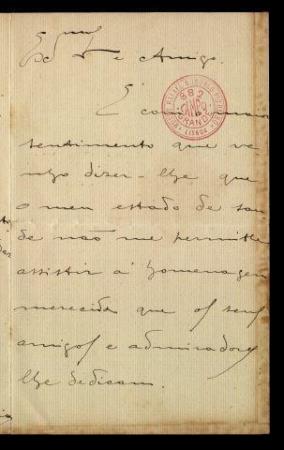 Ex.mo Sr e Amigo.
É com
sentimento que ve
nho dizer-lhe que
o meu estado de sau
de não me permitte
assistir á homenagem
merecida que os seus
amigos e admiradores
lhe dedicam.
682
CAMPO
GRANDE
LISBOA